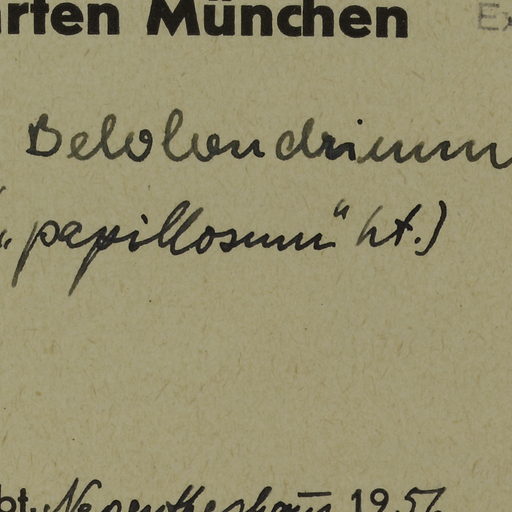 rten München Ex
Belolondrium
(„papillosum" ht.)
bt. Nepentheshaus 1957